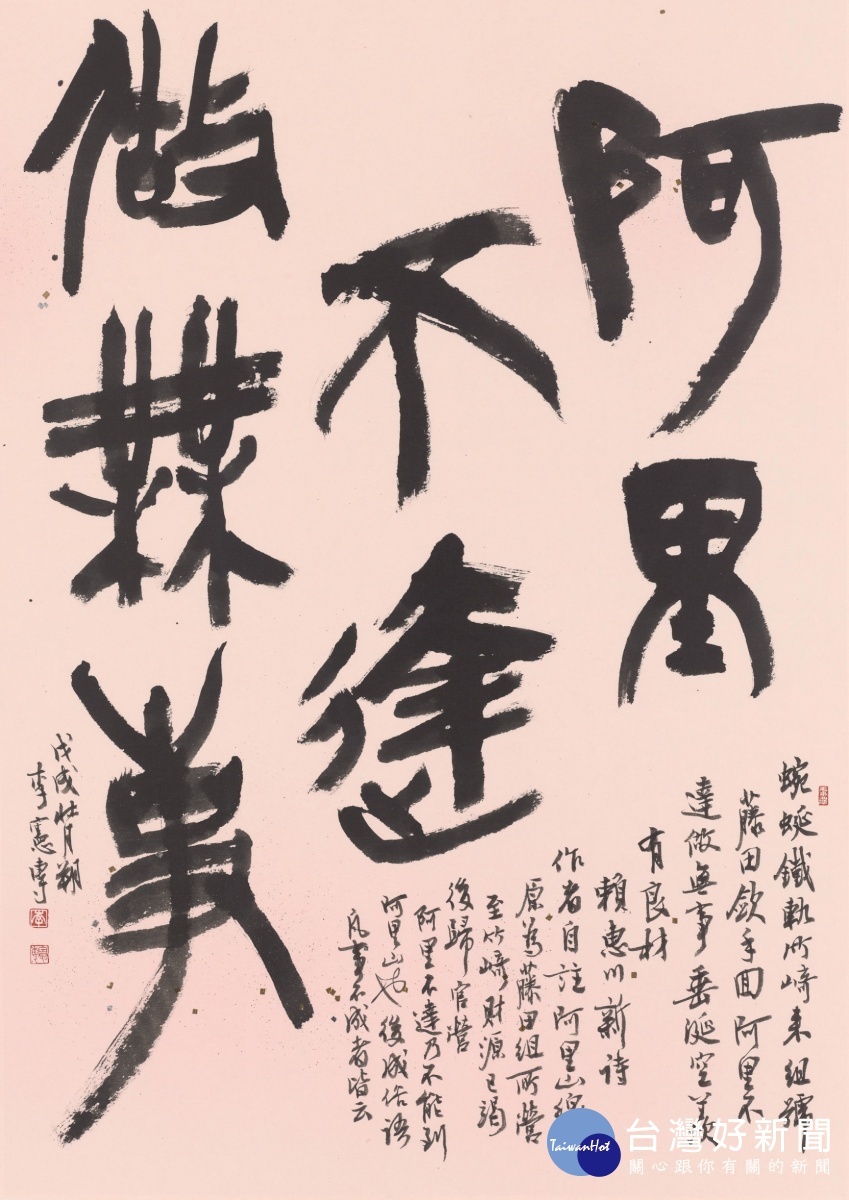 阿里
不達
做無事
蜿蜒鐵軌竹崎來組號
藤田歛手回阿里不
達做無事垂涎空羨
有良材
賴惠川新詩
作者自註阿里山線
原為藤田組所營
至竹崎財源已竭
後歸官營
阿里不達乃不能到
阿里山也後成俗語
凡事不成者皆云
戊戌壯月朔
李憲專
TaiwanHot
台灣好新聞
關心跟你有關的新聞